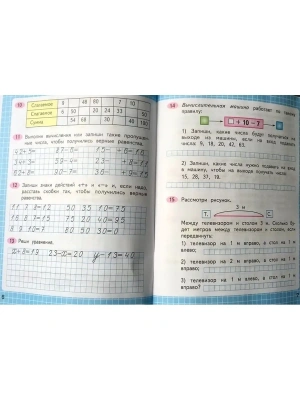 Слагаемое 9 48 80 7 10
Слагаемое 6 50 20 24 33
Сумма 54 68 30 40 100
11 Выполни вычисления или запиши такие пропущенные числа, чтобы получились верные равенства.
12 Запиши знаки действий «+» и «−» и, если надо, расставь скобки так, чтобы получились верные равенства.
15 8 7=15 75 20 40=95
8 3 10=7 80 50 30=0
13 Реши уравнение.
x+8=19 23-x=20 y-13=40
14 Вычислительная машина работает по такому правилу:
+ 10 − 7
1) Запиши, какие числа будут получаться на выходе из машины, если на вход подавать числа: 9, 18, 20, 42, 63.
2) Запиши, какие числа нужно подавать на вход в машину, чтобы на выходе получить числа: 15, 28, 37, 19.
15 Рассмотри рисунок.
3 м
Т. С.
Между телевизором и столом 3 м. Сколько будет метров между телевизором и столом, если передвинуть:
1) телевизор на 1 м влево, а стол на 1 м влево;
2) телевизор на 2 м вправо, а стол на 1 м вправо;
3) телевизор на 1 м влево, а стол на 1 м вправо?